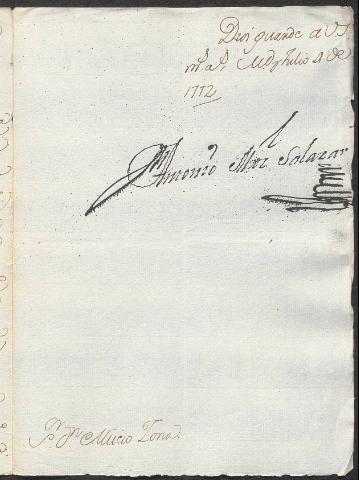 Dios guarde a VS
m.s a.s Md y Julio 1 de
1772
Antonio Mrz Salazar
S.r Dn Mucio Zona